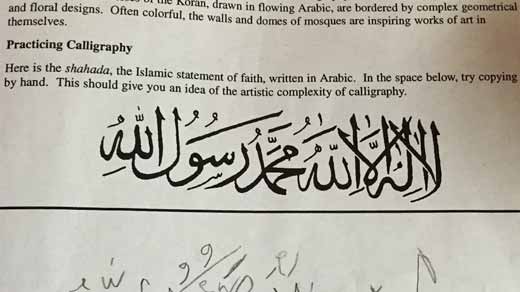 of the Koran, drawn in flowing Arabic, are bordered by complex geometrical
and floral designs. Often colorful, the walls and domes of mosques are inspiring works of art in
themselves.
Practicing Calligraphy
Here is the shahada, the Islamic statement of faith, written in Arabic. In the space below, try copying
by hand. This should give you an idea of the artistic complexity of calligraphy.
لا إله إلا الله محمد رسول الله